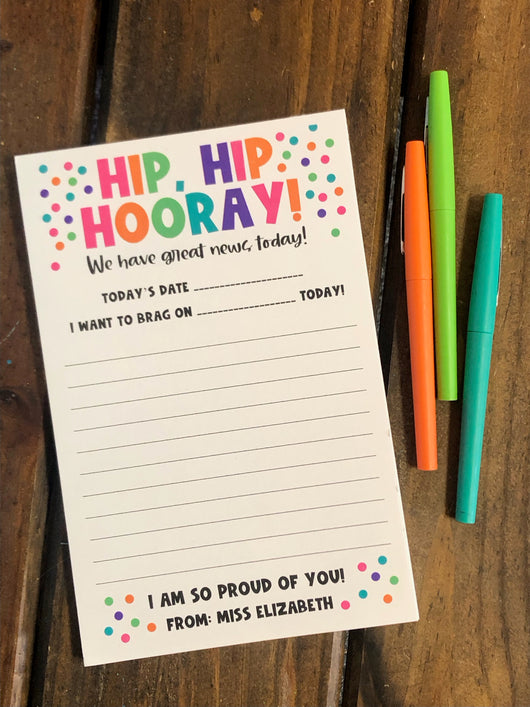 HIP, HIP
HOORAY!
We have great news, today!
TODAY'S DATE ____________________
I WANT TO BRAG ON __________________ TODAY!
I AM SO PROUD OF YOU!
FROM: MISS ELIZABETH